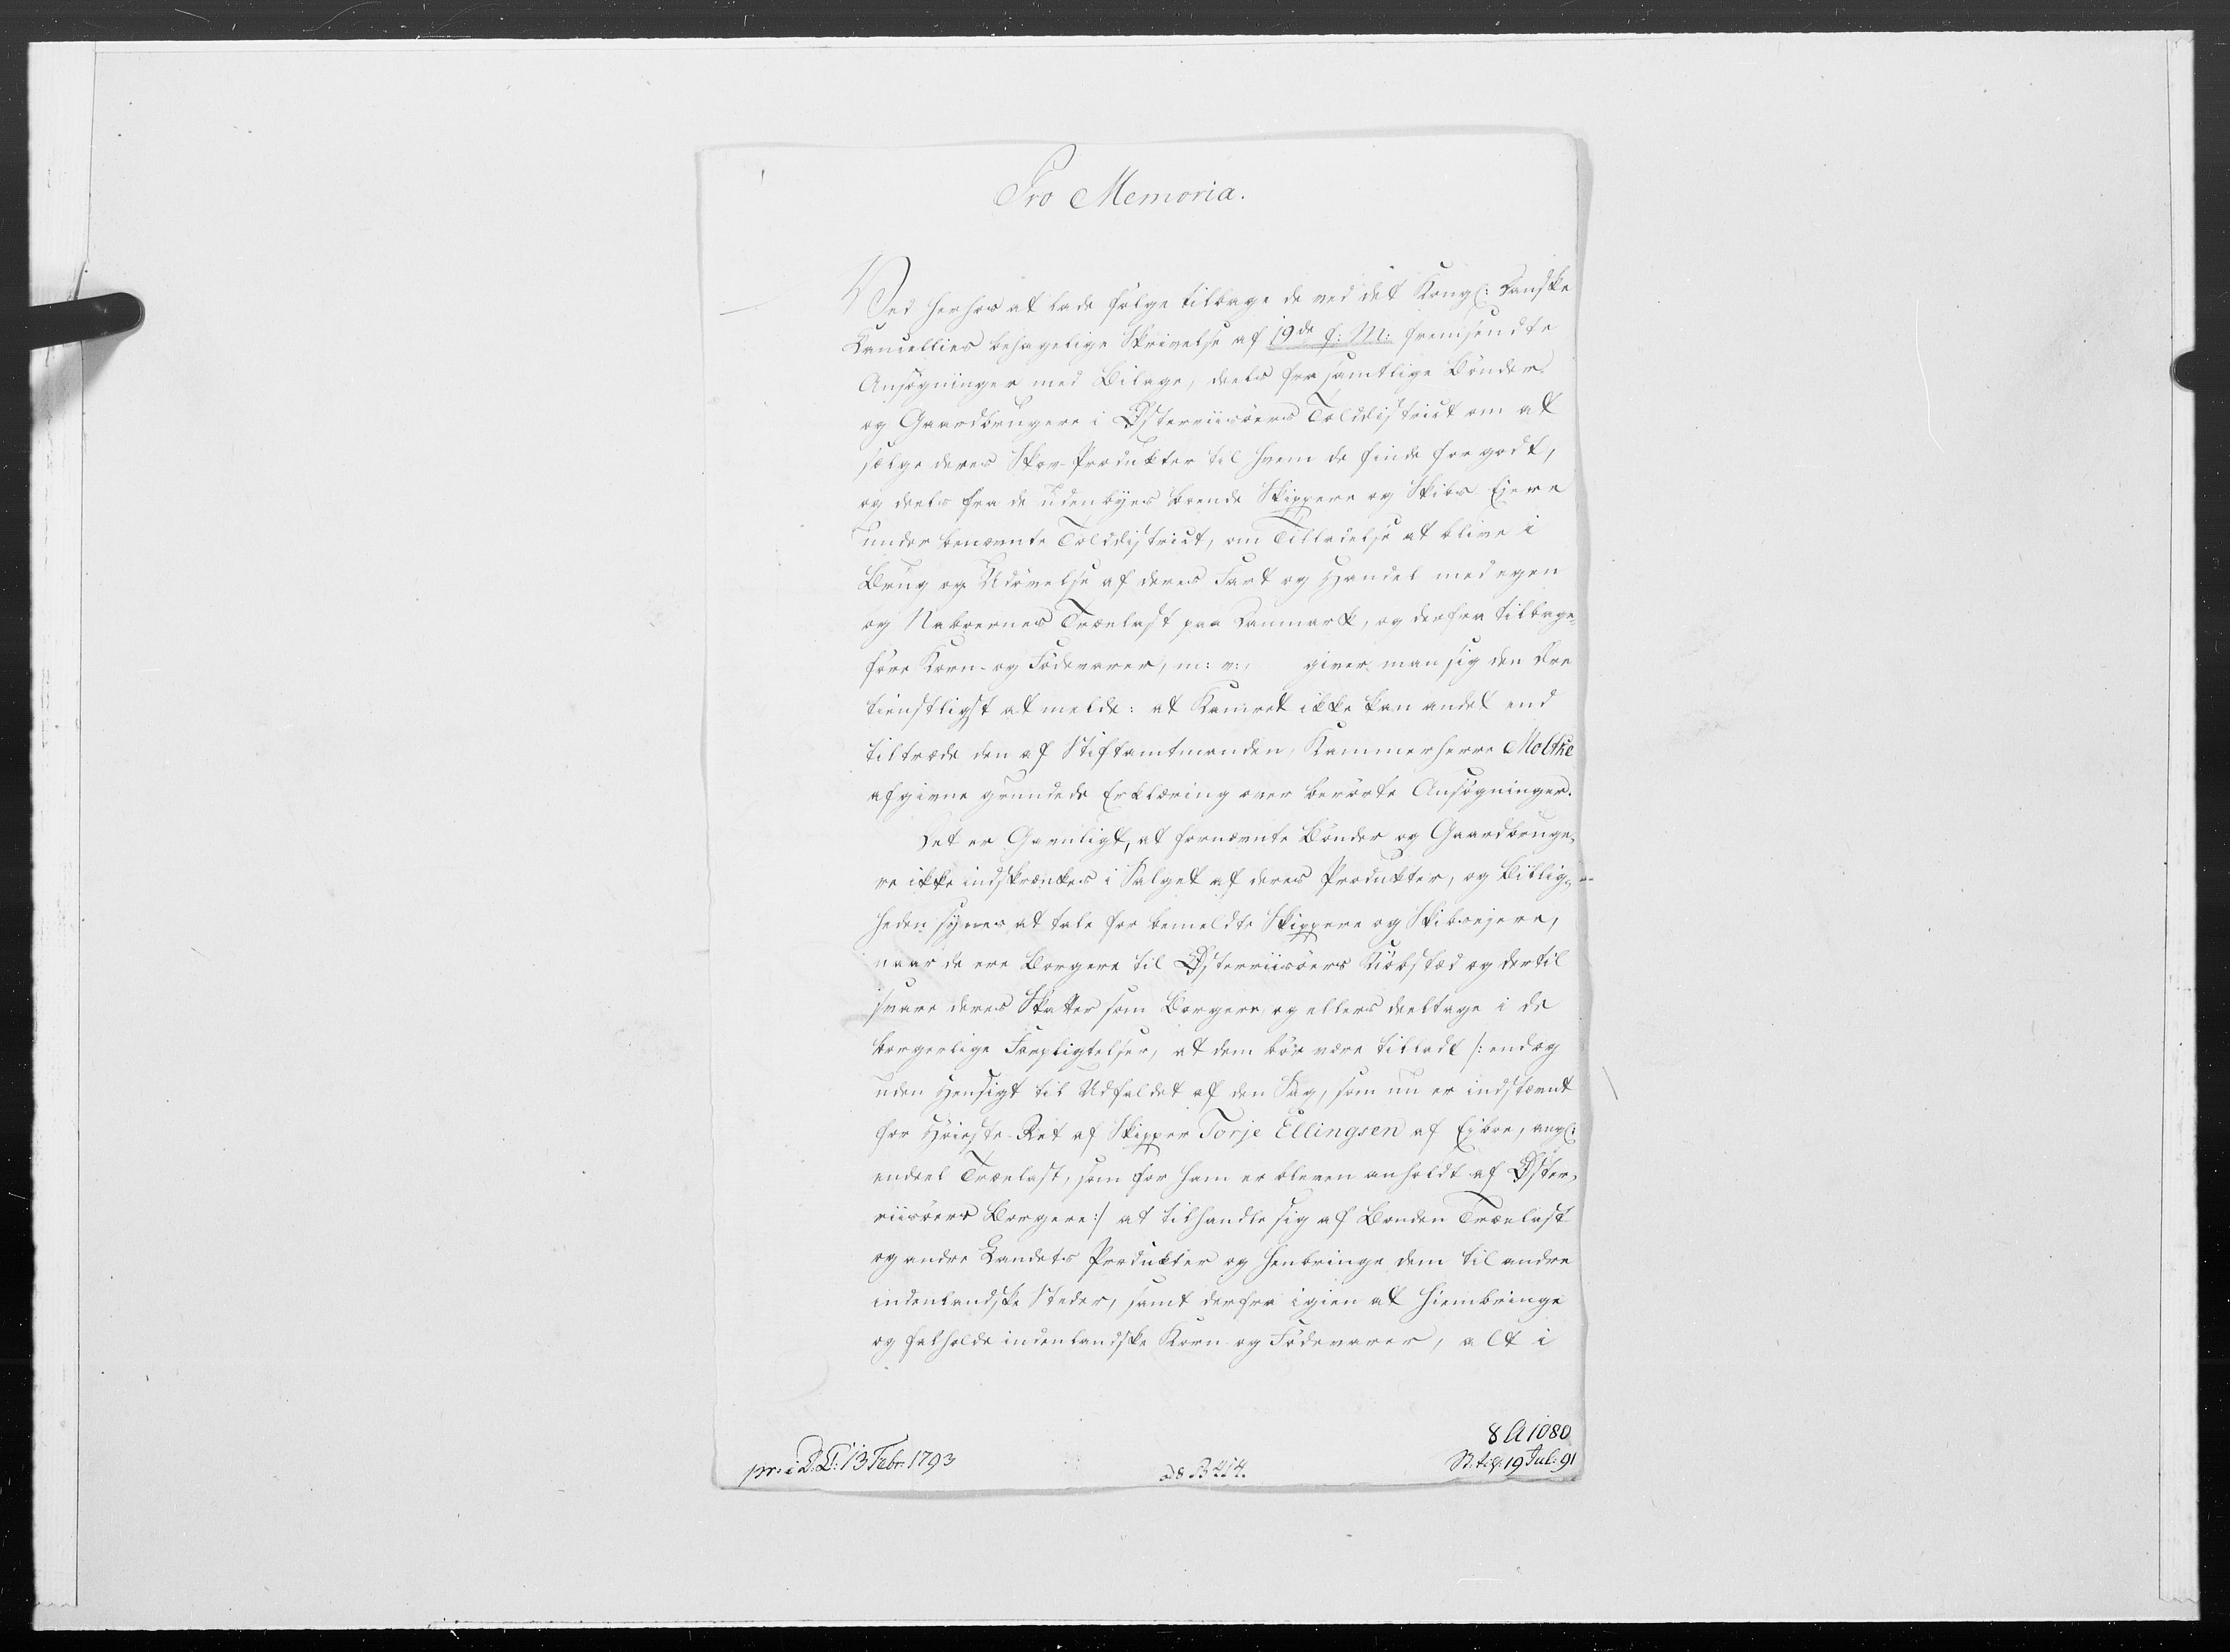 Pro Memoria.
Ved herhos at lade følge tilbage de ved det Kongl: Danske
Cancellies behagelige Skrivelse af 19de f: M: fremsendte
Ansøgninger med Bilage, deels fra samtlige Bønder
og Gaardbrugere i Østerriisöers Tolddistrict om at
sælge deres Skov-Produkter til hvem de finde for godt,
og deels fra de udenbyes boende Skippere og Skibs Ejere
under benævnte Tolddistrict, om Tilladelse at blive i
Brug og Udøvelse af deres Fart og Handel med egen
og Naboernes Trælast paa Danmark, og derfra tilbage-
føre Korn- og Fødevarer, m: v:, giver man sig den Ære
tienstligst at melde: at Kamret ikke kan andet end
tiltræde den af Stiftamtmanden, Kammerherre Moltke
afgivne grundede Erklæring over berørte Ansøgninger.
Det er Gavnligt, at fornævnte Bønder og Gaardbruge-
re ikke indskrænkes i Salget af deres Produkter, og Billig-
heden synes at tale for bemeldte Skippere og Skibsejere,
naar de ere Borgere til Østerriisöers Kiöbstæd og dertil
svare deres Skatter som Borgere, og ellers deeltage i de
borgerlige Forpligtelser, at dem bör være tilladt /: endog
uden Hensigt til Udfaldet af den Sag, som nu er indstævnt
for Høieste-Ret af Skipper Torje Ellingsen af Ejboe, angl:
endeel Trælast, som for ham er bleven anholdt af Øster-
riisöers Borgere :/ at tilhandle sig af Bonden Trælast
og andre Landets Produkter og henbringe dem til andre
indenlandske Steder, samt derfra igien at hiembringe
og falholde indenlandske Korn og Fødevarer, alt i
8 A 1080
pr: i D: C: 13 Febr: 1793
ad 8 B 414.
19 Jul: 91